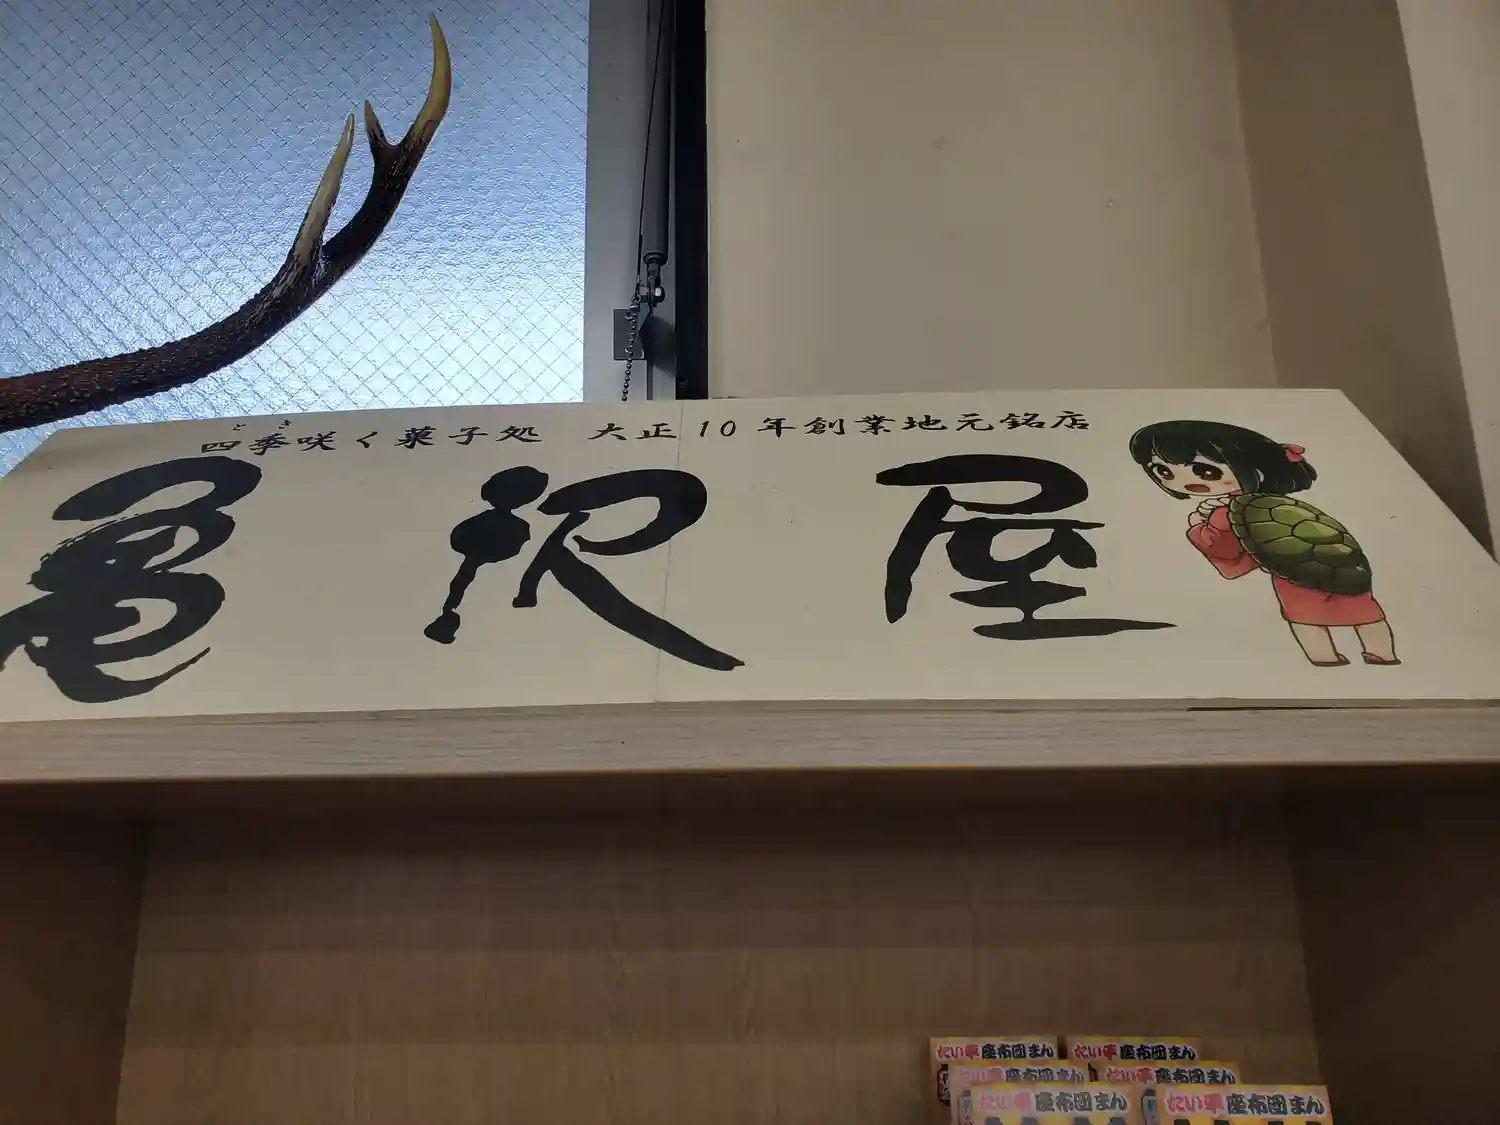 とき
四季咲く菓子処 大正10年創業地元銘店
亀沢屋
たい平 座布団まん たい平 座布団まん
たい平 座布団まん たい平 座布団まん
たい平 座布団まん たい平 座布団まん